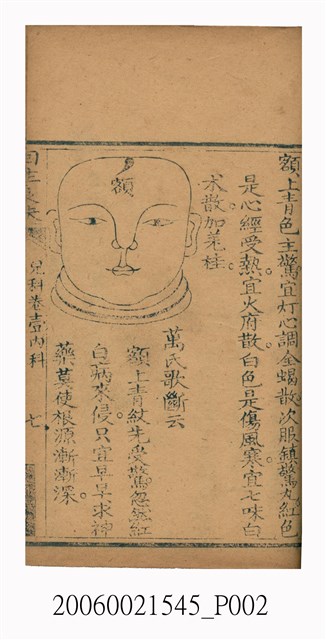 額上青色主驚宜灯心調全蝎散次服鎮驚丸紅色
是心經受熱宜火府散白色是傷風寒宜七味白
朮散加羌桂
額
萬氏歌斷云
額上青紋先受驚忽然紅
白病來侵只宜早早求神
藥莫使根源漸漸深
兒科卷壹內科
七
20060021545_P002